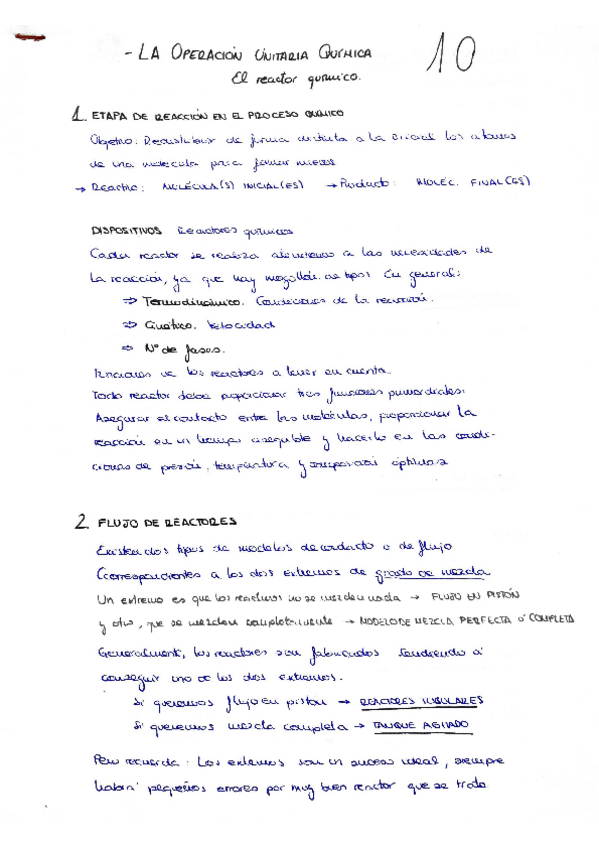 - LA OPERACIÓN UNITARIA QUÍMICA
10
El reactor químico.
1. ETAPA DE REACCIÓN EN EL PROCESO QUÍMICO
Objetivo: Redistribuir de forma distinta a la inicial los átomos
de una molécula para formar nuevos
→ Reactivo: MOLÉCULA(S) INICIAL(ES) → Producto: MOLÉC. FINAL(ES)
DISPOSITIVOS Reactores químicos
Cada reactor se realiza atendiendo a las necesidades de
la reacción, ya que hay mogollón de tipos. En general:
⇒ Termodinámico. Condiciones de la reacción.
⇒ Cinético. Velocidad
⇒ Nº de fases.
Funciones de los reactores a tener en cuenta.
Todo reactor debe proporcionar tres funciones primordiales:
Asegurar el contacto entre las moléculas, proporcionar la
reacción en un tiempo asequible y hacerlo en las condi-
ciones de presión, temperatura y composición óptimas
2. FLUJO DE REACTORES
Existen dos tipos de modelos de contacto o de flujo
Correspondientes a los dos extremos de grado de mezcla
Un extremo es que los reactivos no se mezclen nada → FLUJO EN PISTÓN
y otro, que se mezclan completamente → MODELO DE MEZCLA PERFECTA Ó COMPLETA
Generalmente, los reactores son fabricados tendiendo a
conseguir uno de los dos extremos.
Si queremos flujo en pistón → REACTORES TUBULARES
Si queremos mezcla completa → TANQUE AGITADO
Pero recuerda: Los extremos son un suceso ideal, siempre
habrá pequeños errores por muy buen reactor que se trate